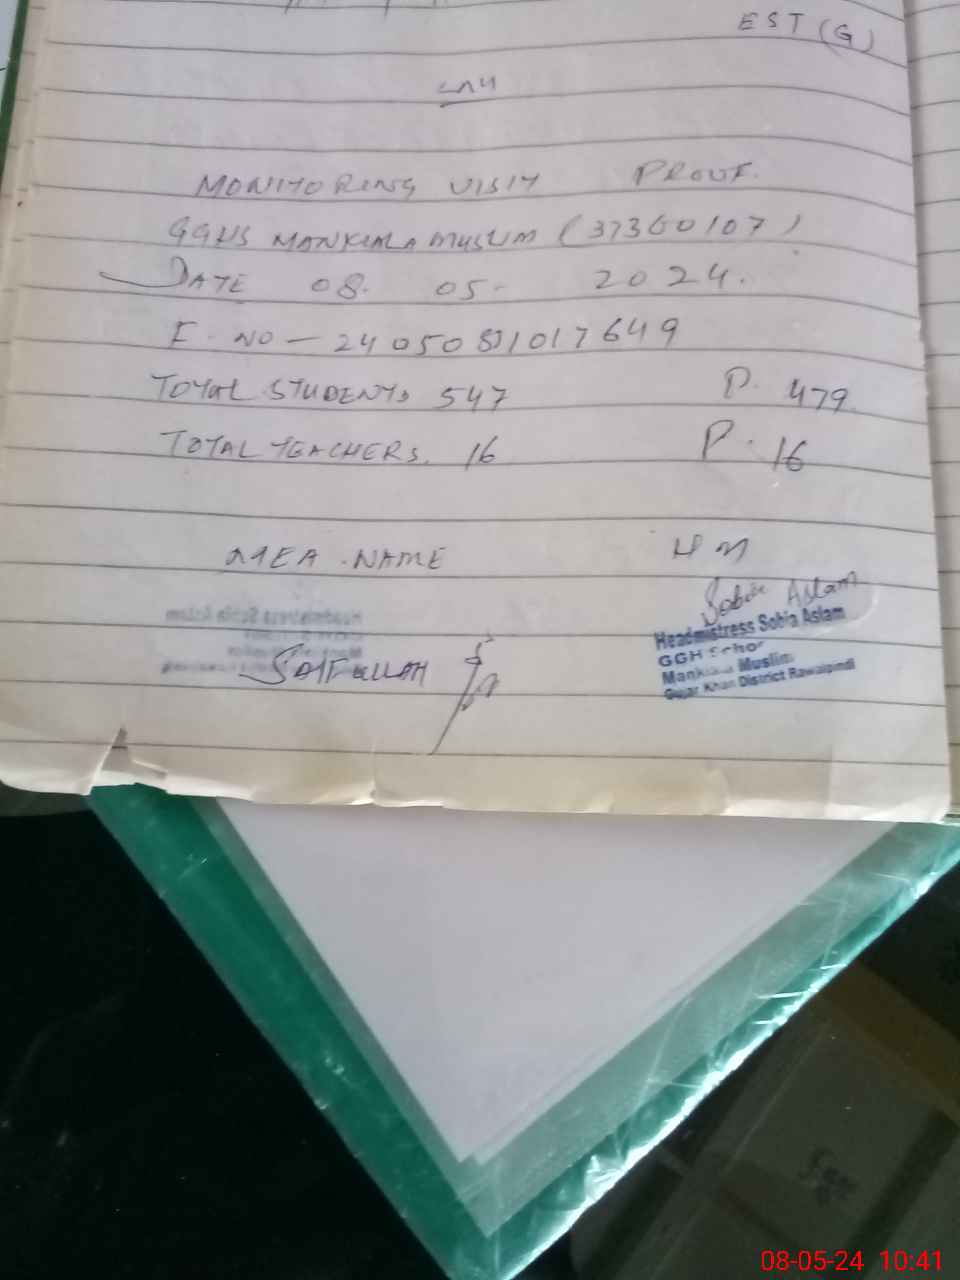 EST (G)
MONITORING VISIT PROUF.
GGHS MANKIALA MUSLIM (37360107)
DATE 08. 05. 2024.
F. NO - 24050831017649
TOTAL STUDENTS 547 P. 479.
TOTAL TEACHERS. 16 P. 16
MEA. NAME HM
Sobia Aslam
Headmistress Sobia Aslam
GGH School
Mankiala Muslim
Gujar Khan District Rawalpindi
SAIFULLAH
08-05-24 10:41